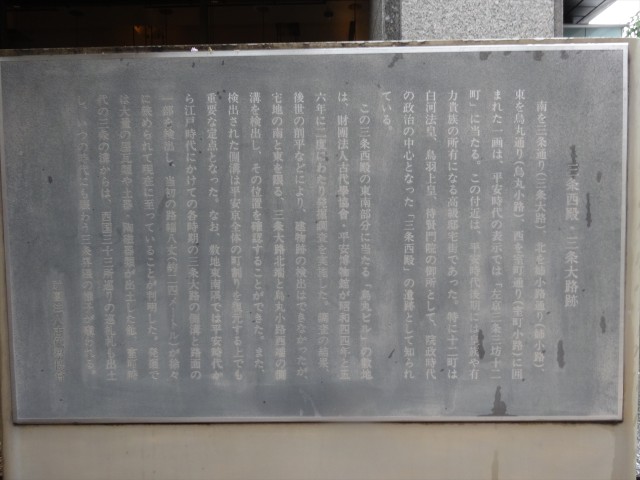 三条西殿・三条大路跡
南を三条通り(三条大路)、北を姉小路通り(姉小路)、
東を烏丸通り(烏丸小路)、西を室町通り(室町小路)に囲
まれた一画は、平安時代の表示では「左京三条三坊十二
町」に当たる。この付近は、平安時代後期には
力貴族の所有になる高級邸宅街であった。特に十二町は
白河法皇、鳥羽上皇、待賢門院の御所として、院政時代
の政治の中心となった「三条西殿」の遺跡として知られ
ている。
この三条西殿の東南部分に当たる「烏丸ビル」の敷地
は、財團法人古代學協會・平安博物館が昭和四四年と五
六年に二度にわたり発掘調査を実施した。調査の結果、
後世の削平などにより、建物跡の検出はできなかったが、
宅地の南と東を限る、三条大路北端と烏丸小路西端の側
溝を検出し、その位置を確認することができた。また、
検出された側溝は平安京全体の町割りを復元する上でも
重要な定点となった。なお、敷地東南隅では平安時代か
ら江戸時代にかけての各時期の三条大路の側溝と路面の
一部を検出し、当初の路幅八丈(約二四メートル)が徐々
に狭められて現在に至っていることが判明した。発掘で
は大量の瓦や土器・陶磁器類が出土した他、室町時
代の三条の溝からは、西国三十三所巡りの巡礼札も出土
し、いつの時代にも賑わう三条